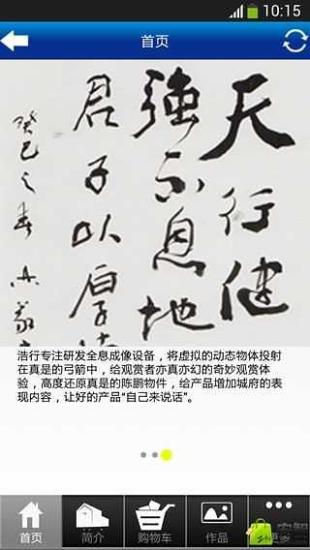 10:15
首页
天行健
強不息地
君子以厚
癸巳之春
浩行专注研发全息成像设备，将虚拟的动态物体投射
在真是的弓箭中，给观赏者亦真亦幻的奇妙观赏体
验，高度还原真是的陈鹏物件，给产品增加城府的表
现内容，让好的产品“自己来说话”。
首页
简介
购物车
作品
更多